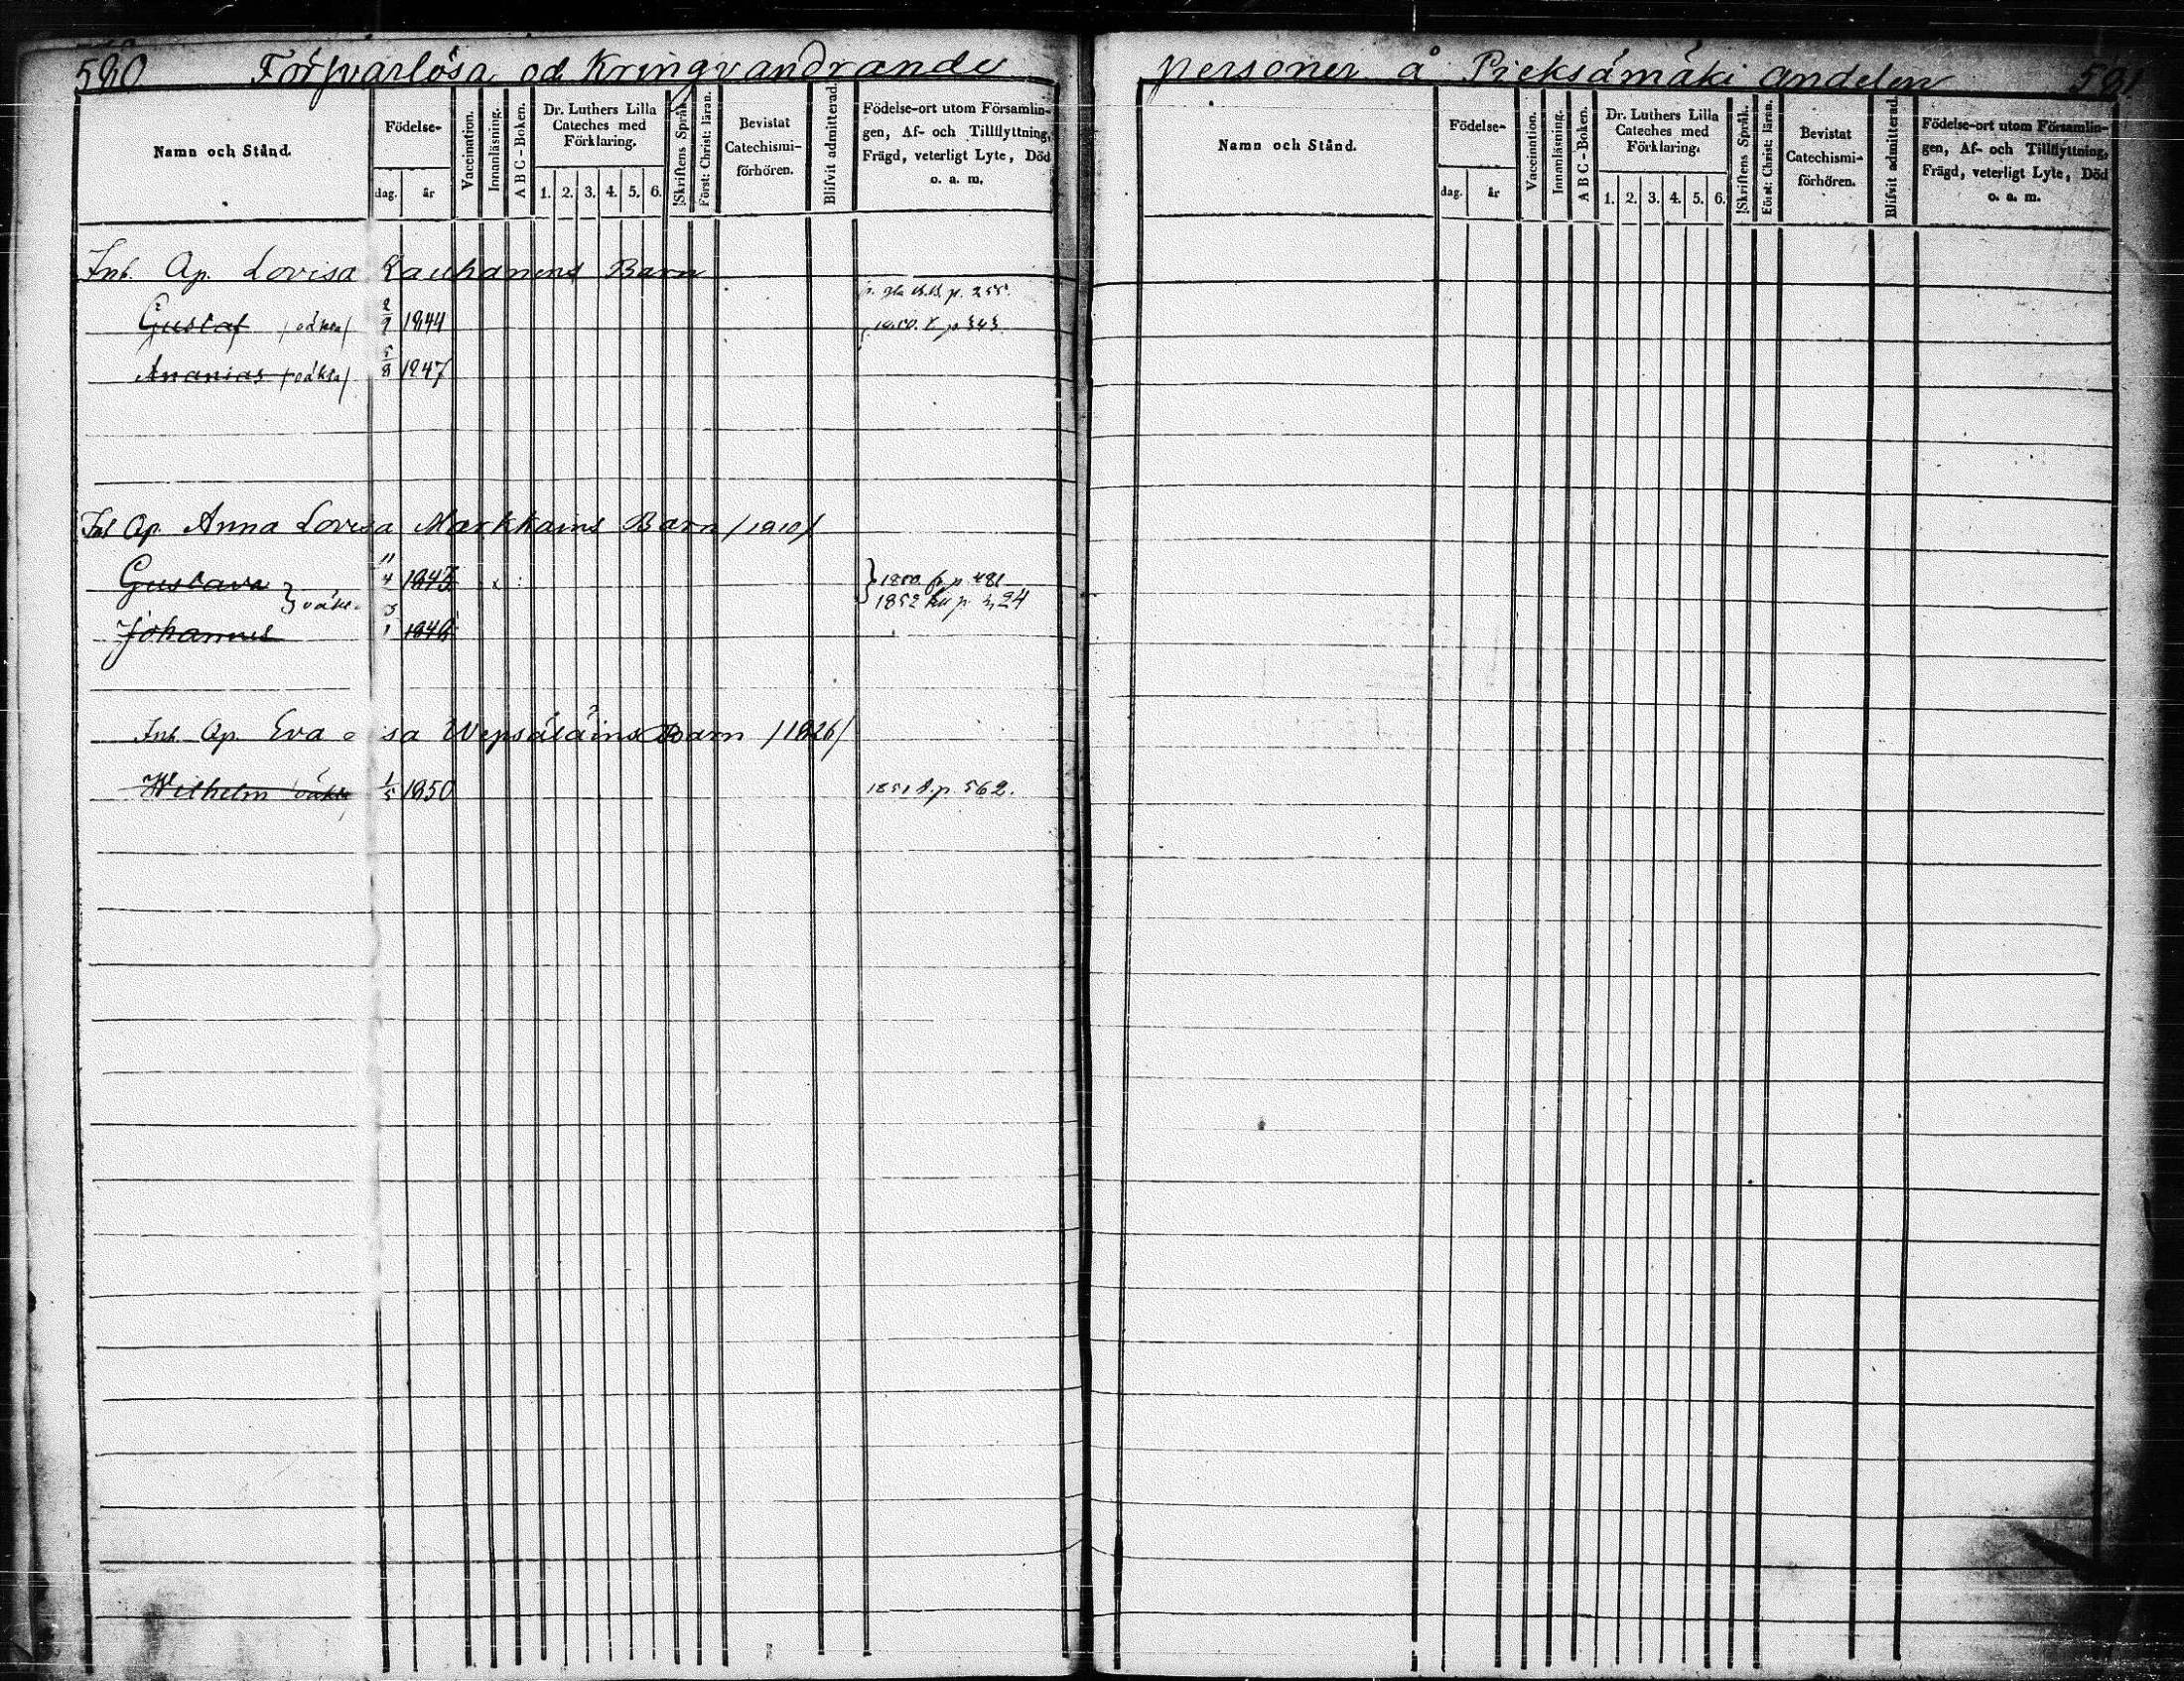 580 Försvarlösa och Kringvandrande personer å Pieksämäki andelen 581
Namn och Stånd.
Födelse-
dag. år
Vaccination.
Innanläsning.
A B C - Boken.
Dr. Luthers Lilla
Cateches med
Förklaring.
1. 2. 3. 4. 5. 6.
Skriftens Språk.
Först: Christ: läran.
Bevistat
Catechismi-
förhören.
Blifvit admitterad.
Födelse-ort utom Församlin-
gen, Af- och Tillflyttning,
Frägd, veterligt Lyte, Död
o. a. m.
Inh. Ap. Lovisa Kauhanens Barn
p. 255.
Gustaf /oäkta/ 2/9 1844 p 343
Ananias /oäkta/ 5/8 1847
Inh Ap. Anna Lovisa Markkains Barn /1810/
Gustava 11/4 1843 x : 1850 p 481
oäkt. 1852 p. 324
Johannes 3/1 1846
Inh. Ap. Eva sa Wepsäläins Barn /1826/
Wilhelm oäkta 1/5 1850 1851 p. 562.
Namn och Stånd.
Födelse-
dag. år
Vaccination.
Innanläsning.
A B C - Boken.
Dr. Luthers Lilla
Cateches med
Förklaring.
1. 2. 3. 4. 5. 6.
Skriftens Språk.
Först: Christ: läran.
Bevistat
Catechismi-
förhören.
Blifvit admitterad.
Födelse-ort utom Församlin-
gen, Af- och Tillflyttning,
Frägd, veterligt Lyte, Död
o. a. m.